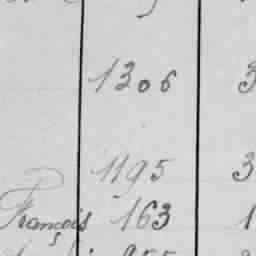 1306 3
1195 3
François 163 1